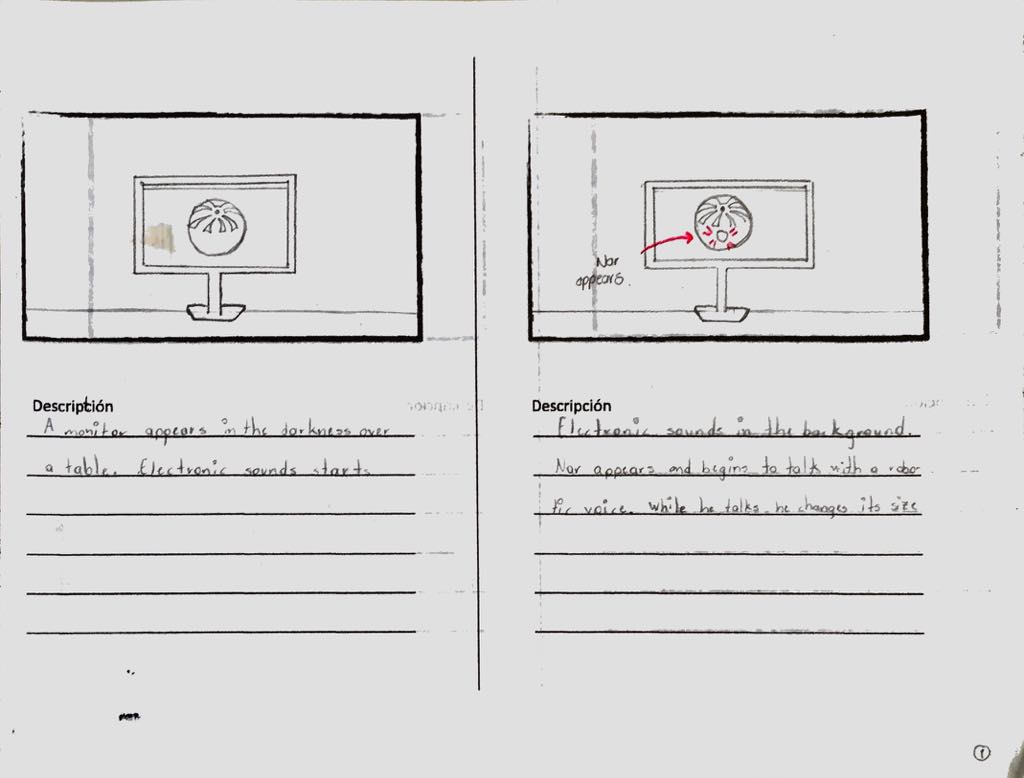 Nar
appears.
Descripción
A monitor appears in the darkness over
a table. Electronic sounds starts
Descripción
Electronic sounds in the background.
Nar appears and begins to talk with a robo
tic voice. While he talks he changes its size
1